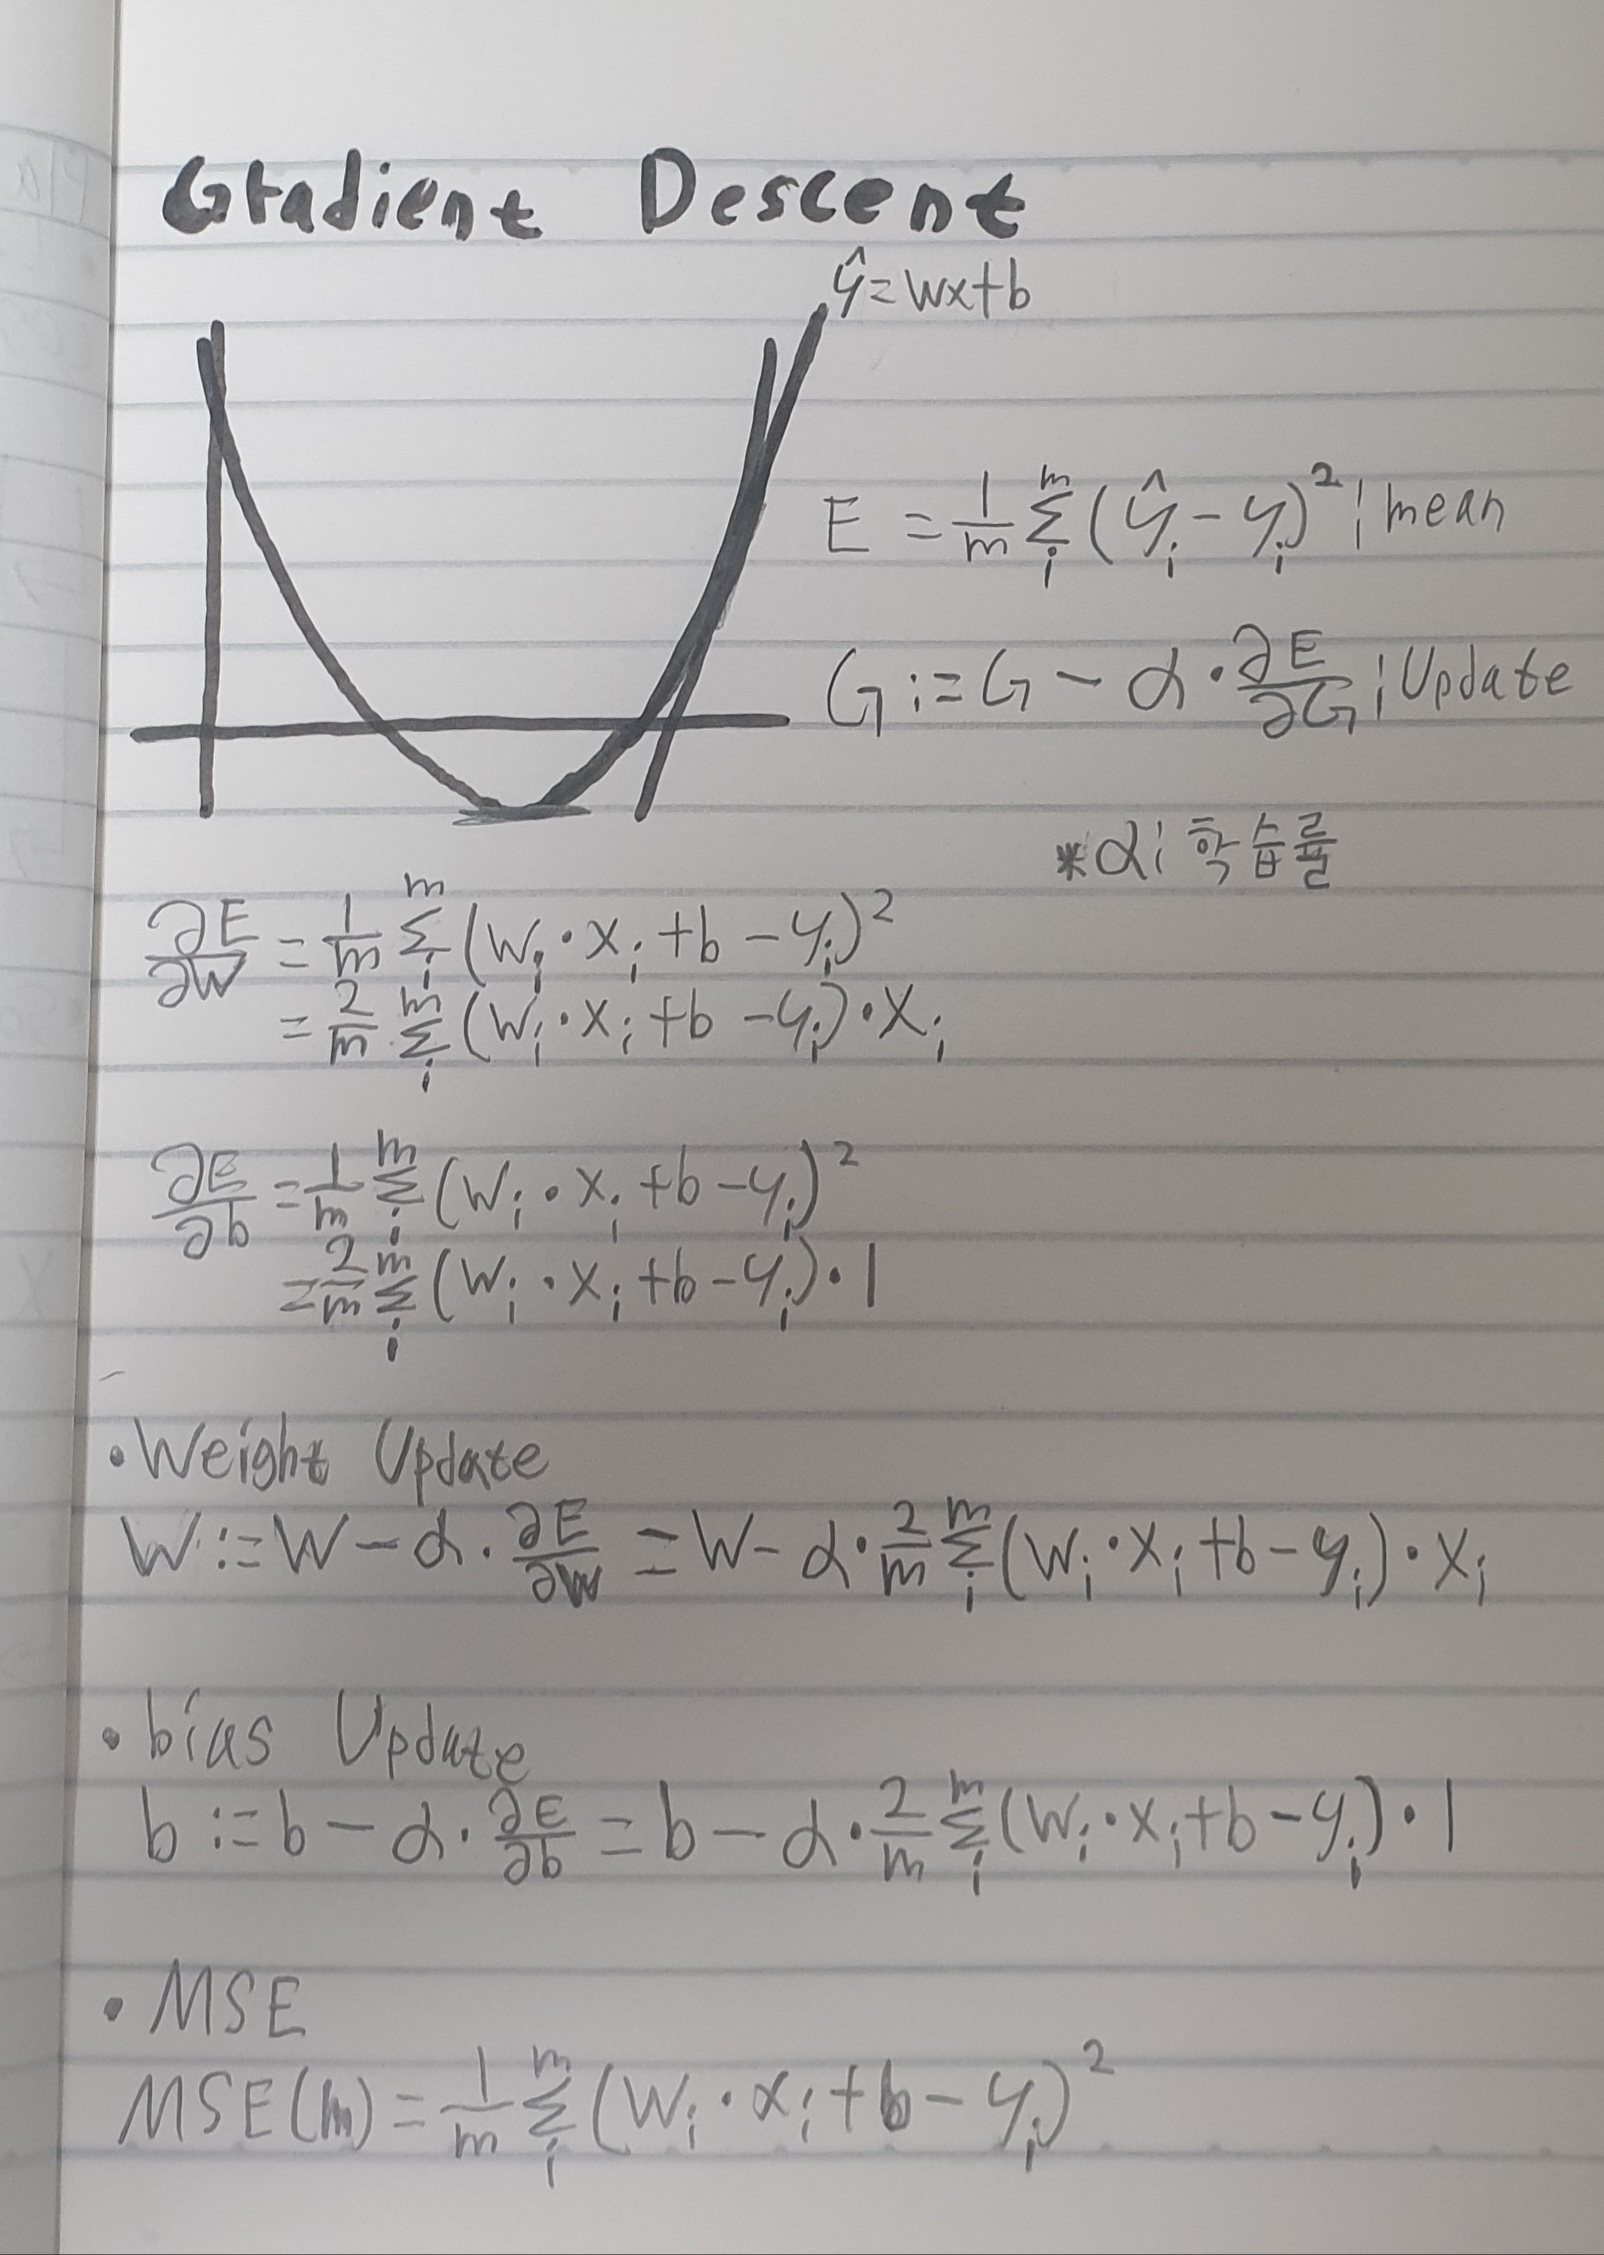 Gradient Descent
ŷ=wx+b
E = 1/m Σ_i^m (ŷ_i - y_i)^2 ; mean
G := G - α · ∂E/∂G ; Update
*α: 학습률
∂E/∂W = 1/m Σ_i^m (W_i · x_i + b - y_i)^2
= 2/m Σ_i^m (W_i · x_i + b - y_i) · x_i
∂E/∂b = 1/m Σ_i^m (W_i · x_i + b - y_i)^2
= 2/m Σ_i^m (W_i · x_i + b - y_i) · 1
· Weight Update
W := W - α · ∂E/∂W = W - α · 2/m Σ_i^m (W_i · x_i + b - y_i) · x_i
· bias Update
b := b - α · ∂E/∂b = b - α · 2/m Σ_i^m (W_i · x_i + b - y_i) · 1
· MSE
MSE(m) = 1/m Σ_i^m (W_i · x_i + b - y_i)^2